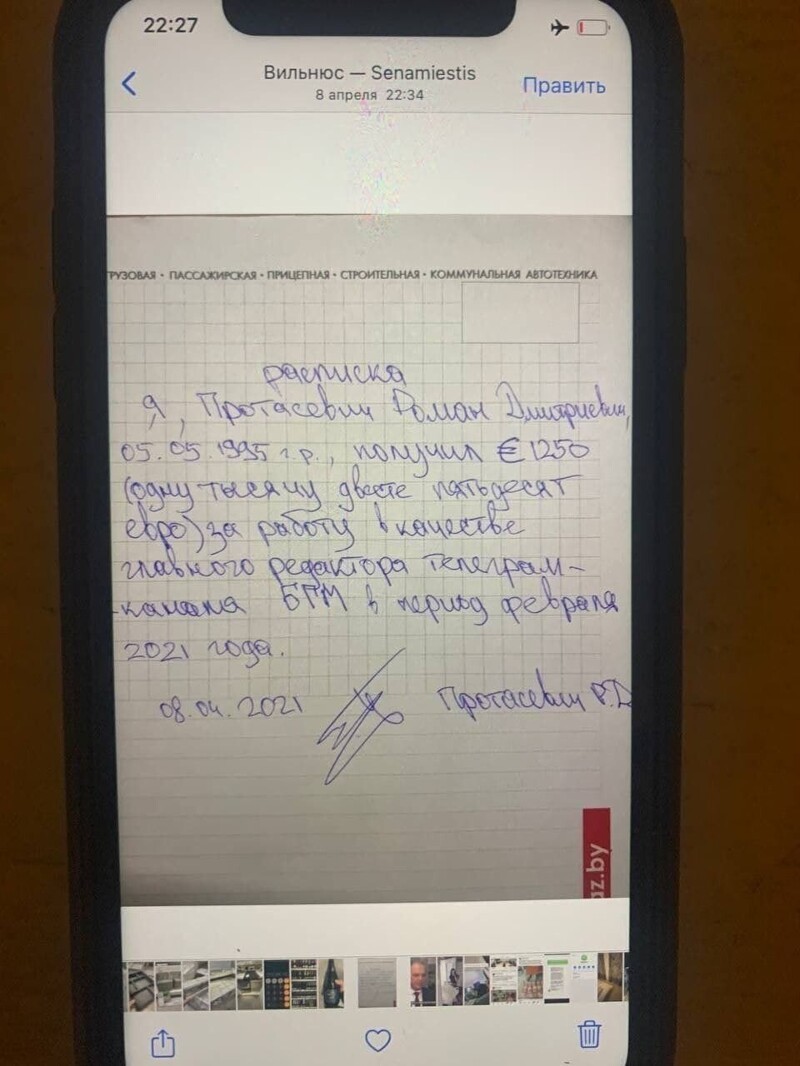 22:27
Вильнюс — Senamiestis
Править
8 апреля 22:34
РУЗОВАЯ • ПАССАЖИРСКАЯ • ПРИЦЕПНАЯ • СТРОИТЕЛЬНАЯ • КОММУНАЛЬНАЯ АВТОТЕХНИКА
расписка
Я, Протасевич Роман Дмитриевич,
05.05.1995 г.р., получил €1250
(одну тысячу двести пятьдесят
евро) за работу в качестве
главного редактора телеграм-
-канала БГМ в период февраля
2021 года.
08.04.2021 Протасевич Р.Д
az.by